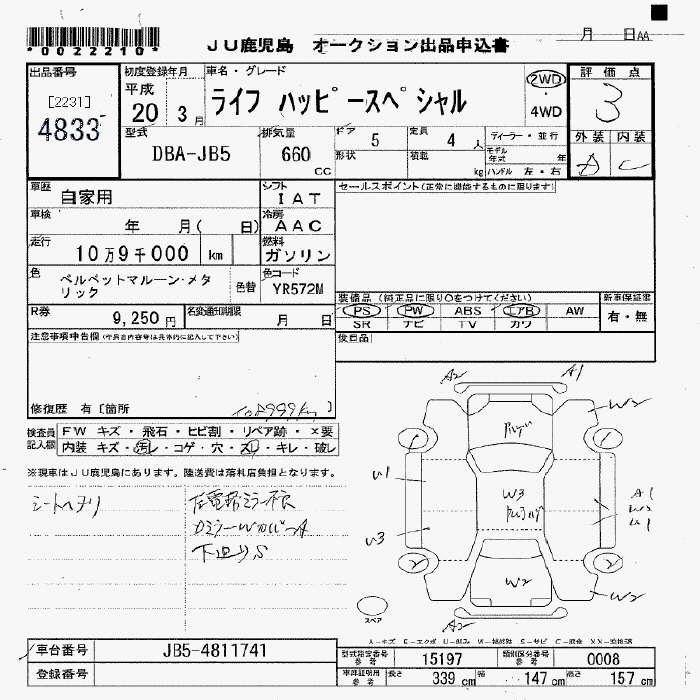 *0022210*
JU鹿児島 オークション出品申込書
月 日 AA
出品番号
[2231]
4833
初度登録年月
平成
20 3 月
車名・グレード
ライフ ハッピースペシャル
2WD
・
4WD
評価点
3
外装 内装
A C
型式
DBA-JB5
排気量
660
CC
ドア 5
定員 4 人
形状
積載 kg
ディーラー・並行
モデル年式 年
ハンドル 左・右
車歴
自家用
シフト
IAT
車検
年 月( 日)
冷房
AAC
走行
10万9千000 km
燃料
ガソリン
色
ベルベットマルーン・メタリック
色替
色コード
YR572M
セールスポイント(正常に機能するものに限ります)
R券
9,250 円
名変通知期限
月 日
装備品(純正品に限り○をつけてください)
PS PW ABS エアB AW
SR ナビ TV カワ
新車保証書
有・無
後日品
注意事項申告欄
修復歴 有〔箇所 〕
検査員記入欄
FW キズ・飛石・ヒビ割・リペア跡・×要
内装 キズ・汚レ・コゲ・穴・スレ・キレ・破レ
※現車はJU鹿児島にあります。陸送費は落札店負担となります。
シートヘタリ
左電格ミラー不良
下廻りS
A2 A1
W2
U1
W3
A1
U1
U3
W2
W2
A2
スペア
車台番号
JB5-4811741
登録番号
型式指定番号
参考
15197
類別区分番号
参考
0008
車庫証明用
参考
長さ
339 cm
幅
147 cm
高さ
157 cm